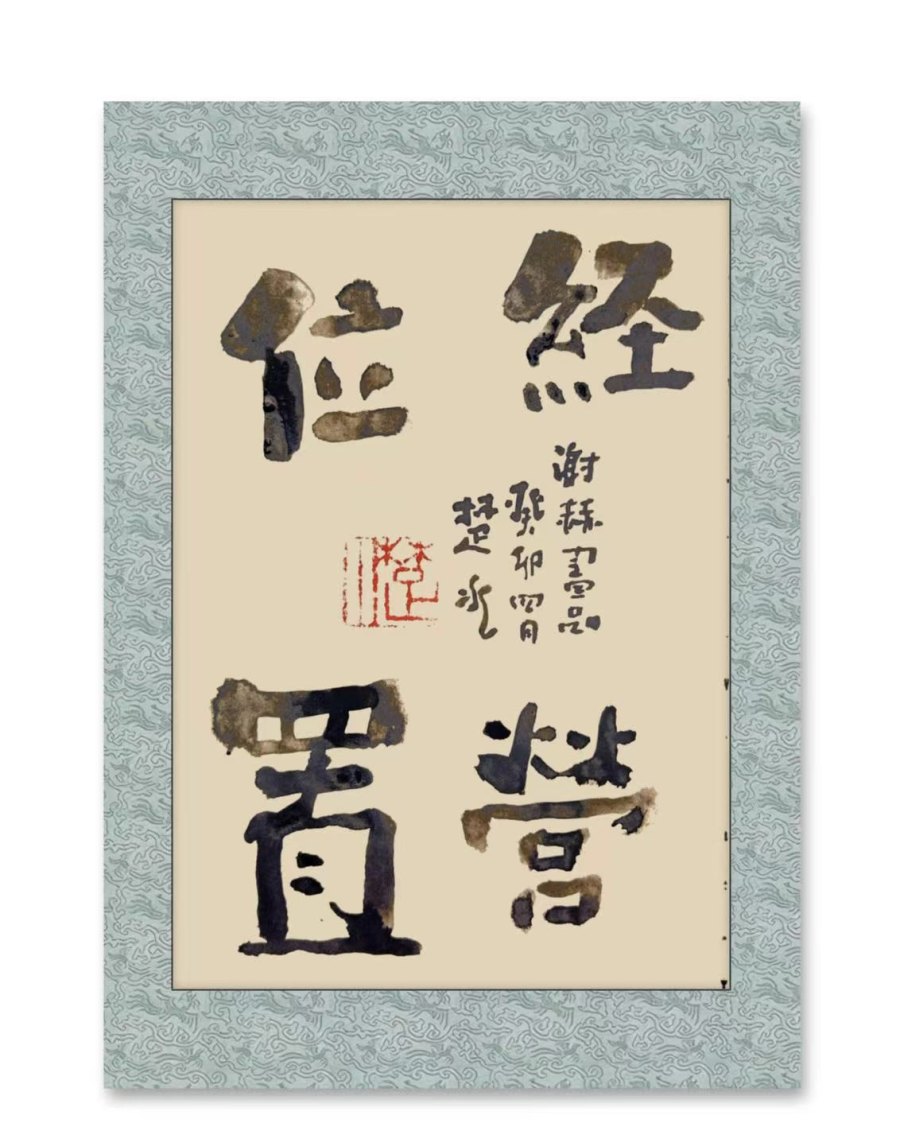 経營
位置
谢赫畫品
癸卯四月
楚水